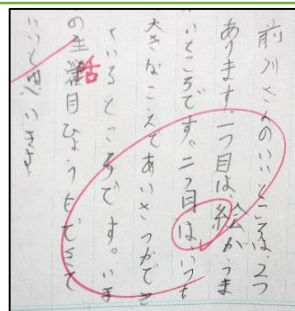 前川さんのいいところは、2つ
あります。一つ目は、絵がうま
いところです。二つ目は、いつも
大きなこえであいさつができ
ているところです。いま
の生活目ひょうもできて
いいと思います